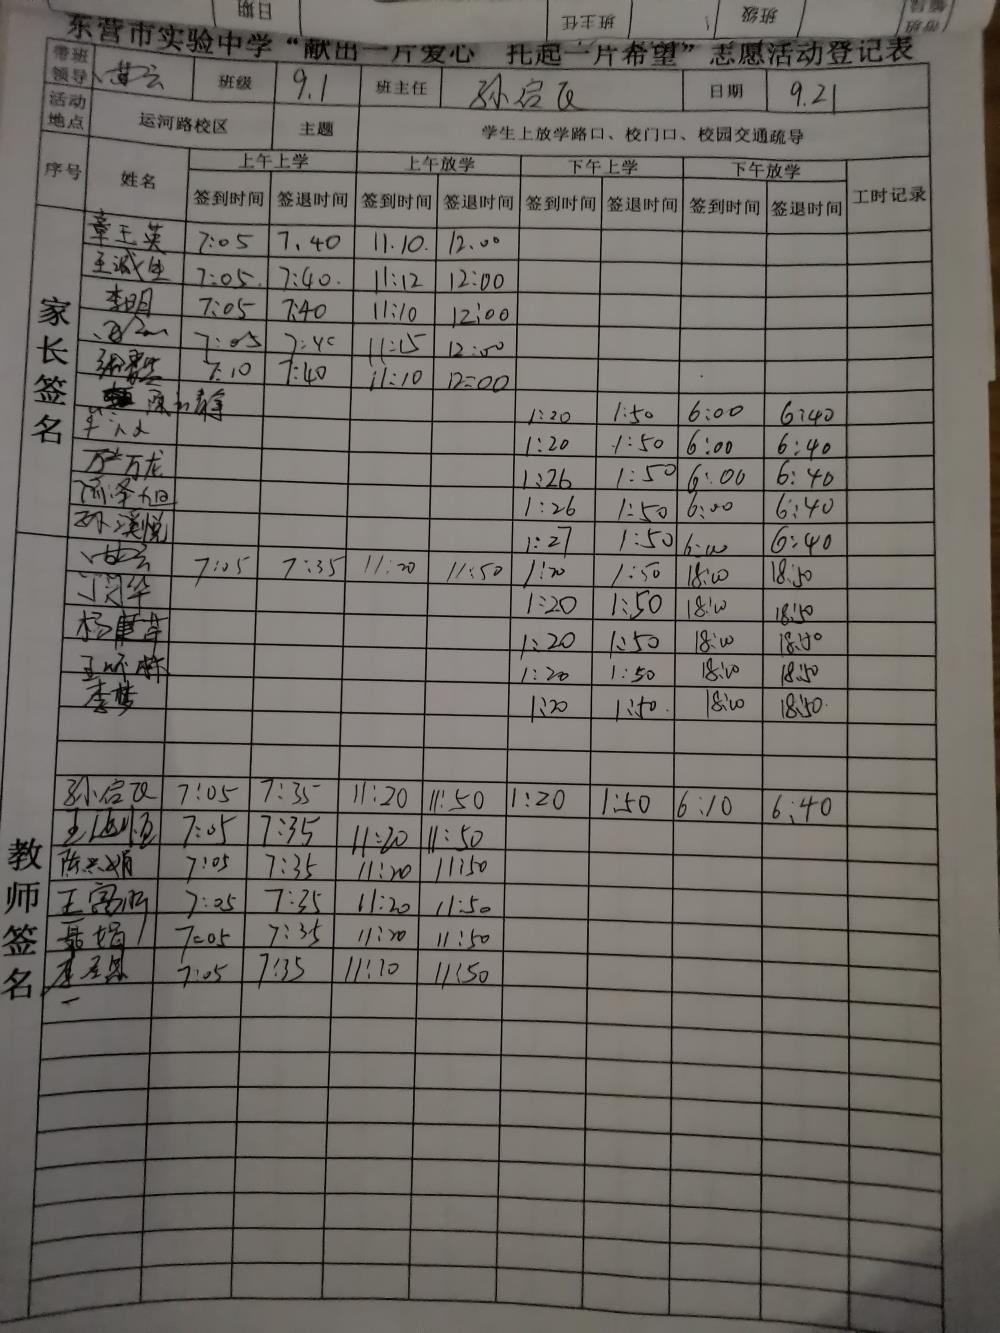 日期 班主任 班级
东营市实验中学“献出一片爱心 托起一片希望”志愿活动登记表
带班领导 班级 9.1 班主任 孙启民 日期 9.21
活动地点 运河路校区 主题 学生上放学路口、校门口、校园交通疏导
序号 姓名 上午上学 上午放学 下午上学 下午放学 工时记录
签到时间 签退时间 签到时间 签退时间 签到时间 签退时间 签到时间 签退时间
家长签名
章玉英 7:05 7.40 11.10. 12.00
王诚 7:05. 7:40. 11:12 12:00
李明 7:05 7:40 11:10 12:00
7:05 7:40 11:15 12:00
7:10 7:40 11:10 12:00
1:20 1:50 6:00 6:40
1:20 1:50 6:00 6:40
万龙 1:26 1:50 6:00 6:40
1:26 1:50 6:00 6:40
孙溪悦 1:27 1:50 6:00 6:40
7:05 7:35 11:20 11:50 1:20 1:50 18:10 18:50
1:20 1:50 18:10 18:50
杨 1:20 1:50 18:10 18:50
王 1:20 1:50 18:10 18:50
李梦 1:20 1:50. 18:10 18:50.
教师签名
孙启民 7:05 7:35 11:20 11:50 1:20 1:50 6:10 6:40
王 7:05 7:35 11:20 11:50
陈 娟 7:05 7:35 11:20 11:50
王富 7:05 7:35 11:20 11:50
聂娟 7:05 7:35 11:20 11:50
李 7:05 7:35 11:20 11:50